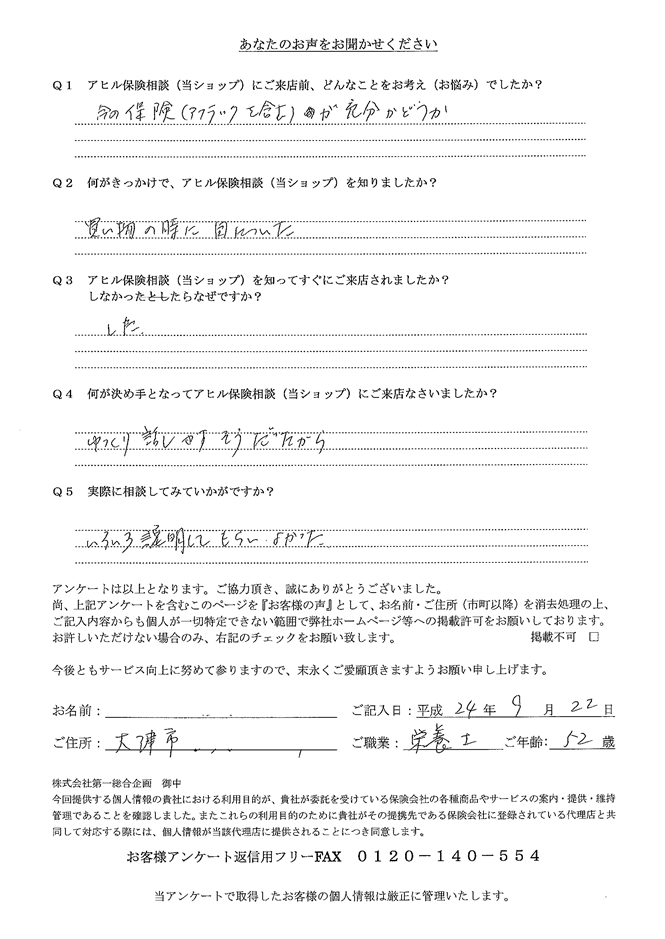 あなたのお声をお聞かせください
Q1 アヒル保険相談(当ショップ)にご来店前、どんなことをお考え(お悩み)でしたか?
今の保険(アフラックを含む)のが充分かどうか
Q2 何がきっかけで、アヒル保険相談(当ショップ)を知りましたか?
買い物の時に目についた
Q3 アヒル保険相談(当ショップ)を知ってすぐにご来店されましたか?
しなかったとしたらなぜですか?
した。
Q4 何が決め手となってアヒル保険相談(当ショップ)にご来店なさいましたか?
ゆっくり話しやすそうだたから
Q5 実際に相談してみていかがですか?
いろいろ説明してもらい、よかった
アンケートは以上となります。ご協力頂き、誠にありがとうございました。
尚、上記アンケートを含むこのページを『お客様の声』として、お名前・ご住所(市町以降)を消去処理の上、
ご記入内容からも個人が一切特定できない範囲で弊社ホームページ等への掲載許可をお願いしております。
お許しいただけない場合のみ、右記のチェックをお願い致します。 掲載不可 □
今後ともサービス向上に努めて参りますので、末永くご愛顧頂きますようお願い申し上げます。
お名前: ご記入日:平成 24 年 9 月 22 日
ご住所: 大津市 ご職業: 栄養士 ご年齢: 52 歳
株式会社第一総合企画 御中
今回提供する個人情報の貴社における利用目的が、貴社が委託を受けている保険会社の各種商品やサービスの案内・提供・維持
管理であることを確認しました。またこれらの利用目的のために貴社がその提携先である保険会社に登録されている代理店と共
同して対応する際には、個人情報が当該代理店に提供されることにつき同意します。
お客様アンケート返信用フリーFAX 0120-140-554
当アンケートで取得したお客様の個人情報は厳正に管理いたします。